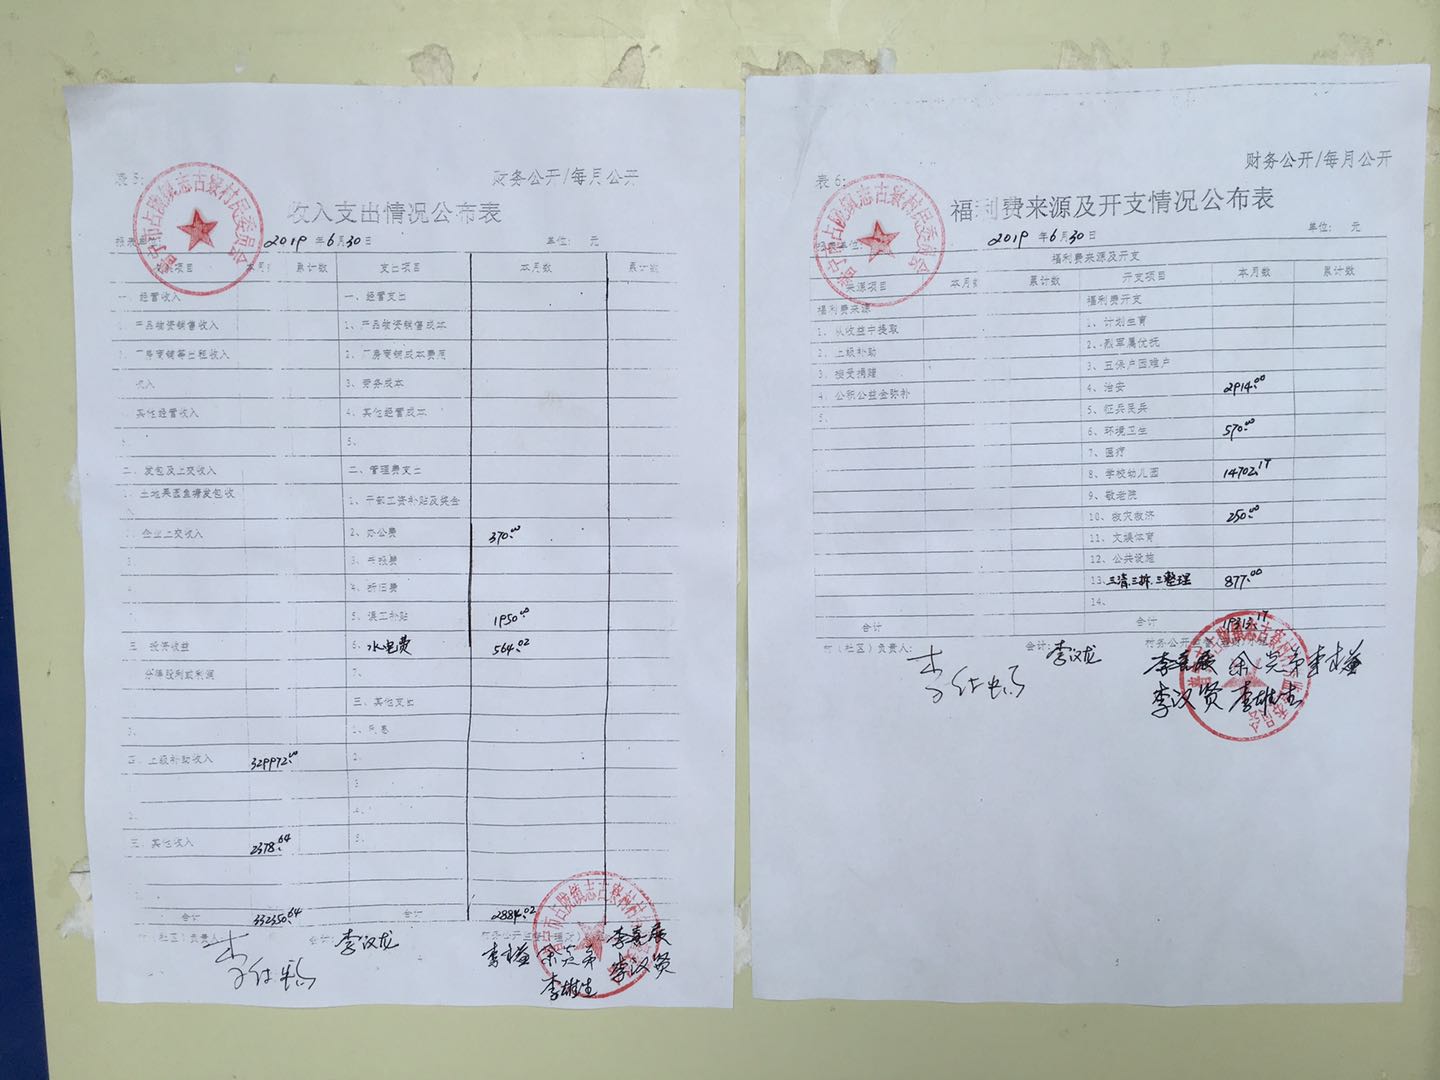 表5:
财务公开/每月公开
收入支出情况公布表
2019年6月30日
单位: 元
普宁市占陇镇志古寮村民委员会
项目 本月 累计数 支出项目 本月数 累计数
一、经营收入 一、经营支出
产品物资销售收入 1、产品物资销售成本
厂房商铺等出租收入 2、厂房商铺成本费用
收入 3、劳务成本
其他经营收入 4、其他经营成本
5、
二、发包及上交收入 二、管理费支出
土地果园鱼塘发包收 1、干部工资补贴及奖金
企业上交收入 2、办公费 370.00
3、书报费
4、折旧费
5、误工补贴 1950.00
三、投资收益 6、水电费 564.02
分得股利或利润 7、
三、其他支出
1、利息
上级补助收入 329972.00 2、
3
4、
其他收入 2378.64 5、
合计 332350.64 合计 2884.02
(社区)负责人: 会计: 李汉龙
李雄生 李汉贤
表6:
财务公开/每月公开
福利费来源及开支情况公布表
2019年6月30日
单位: 元
普宁市占陇镇志古寮村民委员会
福利费来源及开支
来源项目 本月 累计数 开支项目 本月数 累计数
福利费来源 福利费开支
1、从收益中提取 1、计划生育
2、上级补助 2、烈军属优抚
3、接受捐赠 3、五保户困难户
4、公积公益金弥补 4、治安 2914.00
5、 5、征兵民兵
6、环境卫生 570.00
7、医疗
8、学校幼儿园 14702.17
9、敬老院
10、救灾救济 250.00
11、文娱体育
12、公共设施
13、三清.三拆.三整理 877.00
14、
合计 合计 19313.17
村(社区)负责人: 会计: 李汉龙 财务公开
李汉贤 李雄生
5